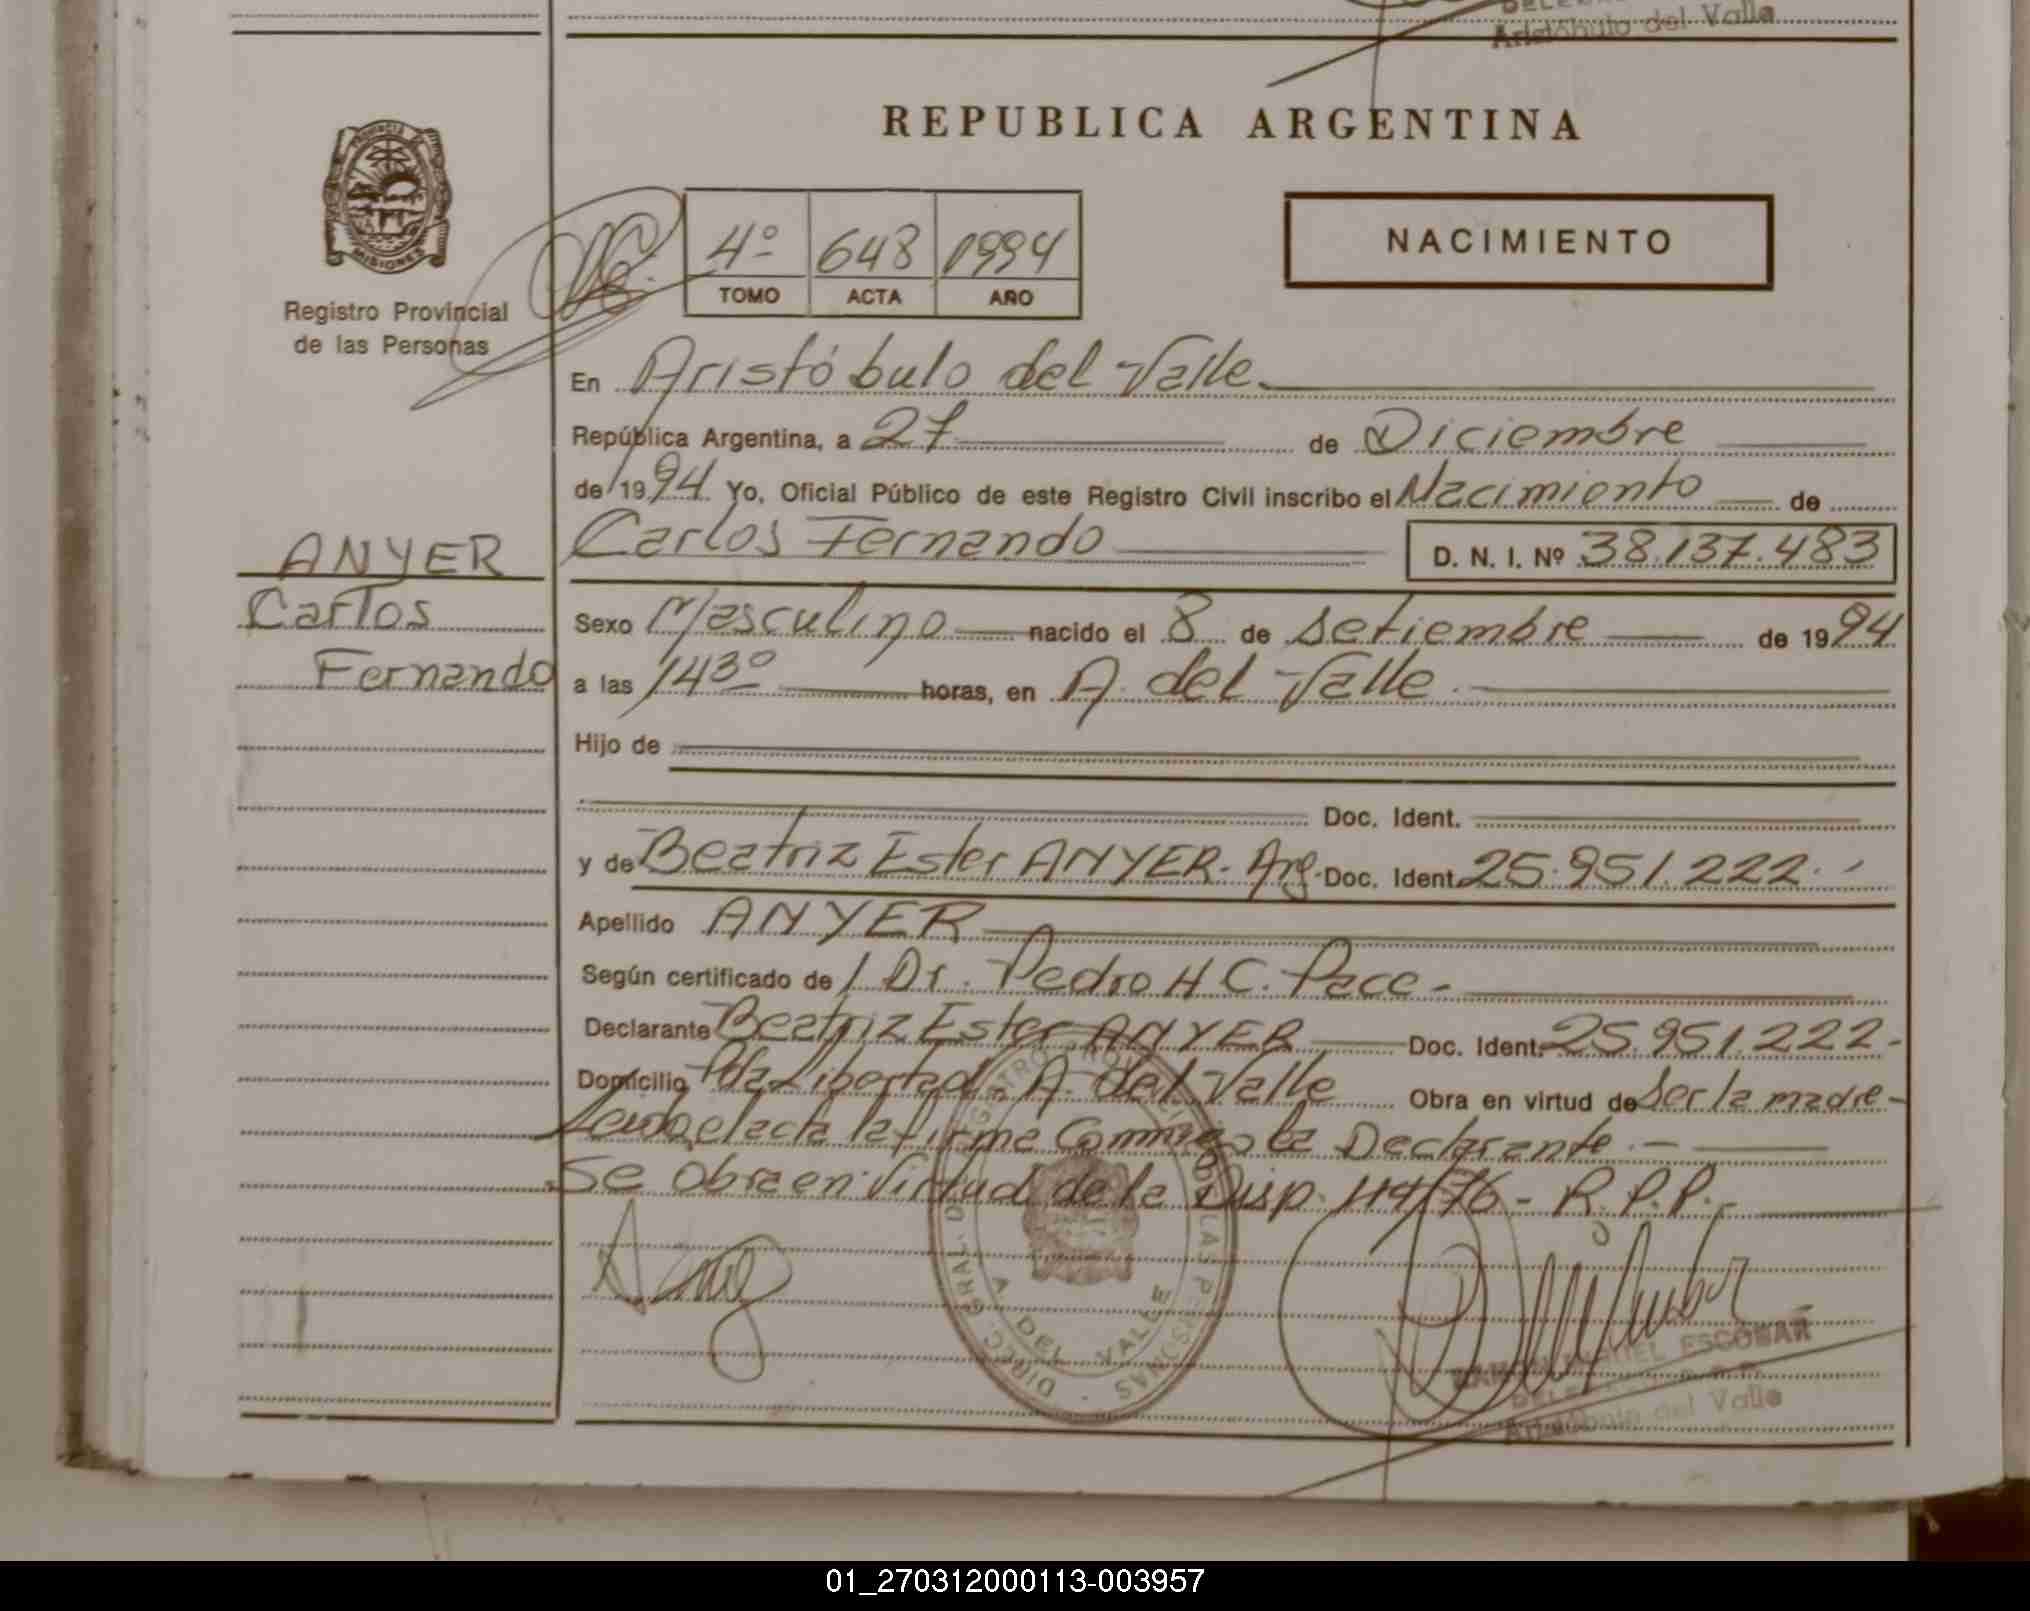 Aristóbulo del Valle
REPUBLICA ARGENTINA
PROVINCIA DE
MISIONES
Registro Provincial
de las Personas
4º 648 1994
TOMO ACTA AÑO
NACIMIENTO
En Aristóbulo del Valle.
República Argentina, a 27 de Diciembre
de 1994 Yo, Oficial Público de este Registro Civil inscribo el Nacimiento de
Carlos Fernando D. N. I. Nº 38.137.483
ANYER
Carlos
Fernando
Sexo Masculino nacido el 8 de Setiembre de 1994
a las 14³⁰ horas, en A. del Valle.
Hijo de
Doc. Ident.
y de Beatriz Ester ANYER- Arg. Doc. Ident. 25.951.222.
Apellido ANYER
Según certificado de Dr. Pedro H C. Pace-
Declarante Beatriz Ester ANYER Doc. Ident. 25.951.222-
Domicilio Pda Libertad. A. del Valle Obra en virtud de ser la madre-
Leido el acta la firma Conmigo la Declarante.-
Se obra en Virtud de la Disp. 114/76- R.P.P.-
DIREC. GRAL. DEL REGISTRO PROVINCIAL DE LAS PERSONAS
A. DEL VALLE
MISIONES
RAMON MIGUEL ESCOBAR
Aristóbulo del Valle
01_270312000113-003957